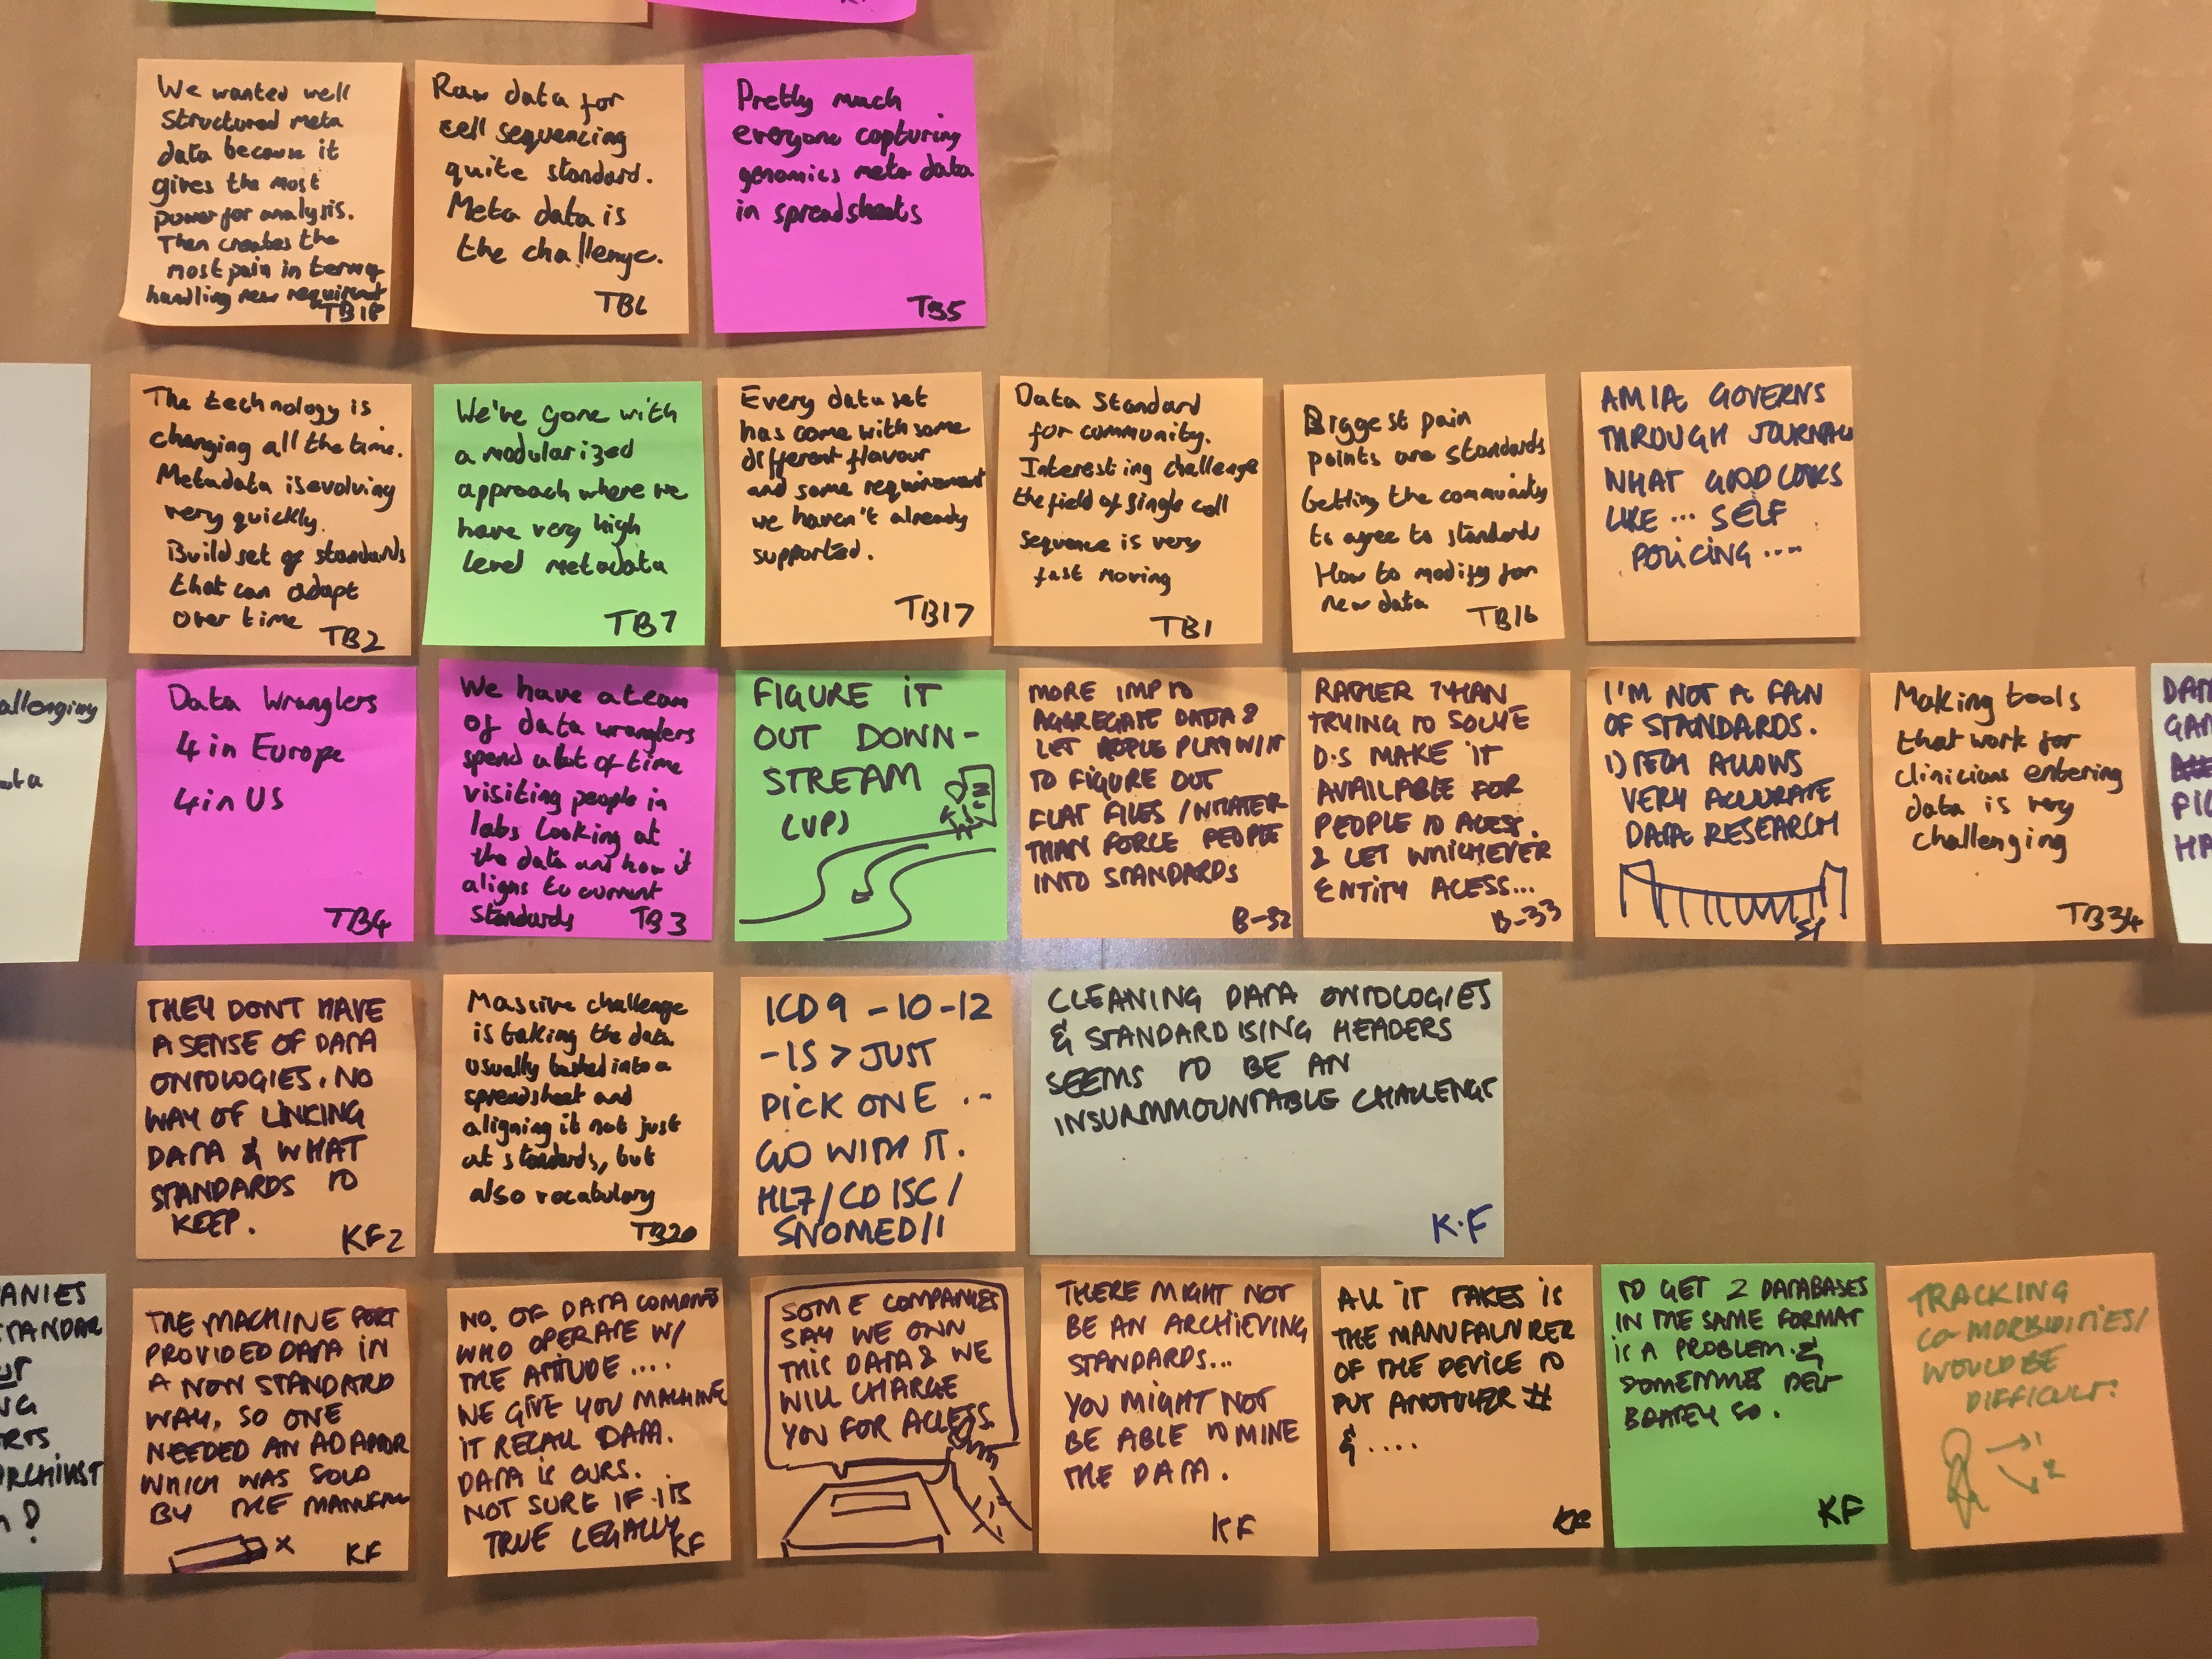 We wanted well
structured meta
data because it
gives the most
power for analysis.
Then creates the
most pain in terms of
handling new
TB18
Raw data for
cell sequencing
quite standard.
Meta data is
the challenge.
TB6
Pretty much
everyone capturing
genomics meta data
in spreadsheets
TB5
The technology is
changing all the time.
Metadata is evolving
very quickly.
Build set of standards
that can adapt
over time
TB2
We've gone with
a modularized
approach where we
have very high
level metadata
TB7
Every data set
has come with some
different flavour
and some requirement
we haven't already
supported.
TB17
Data Standard
for community.
Interesting challenge
the field of single cell
sequence is very
fast moving
TB1
Biggest pain
points are standards
Getting the community
to agree to standards
How to modify for
new data
TB16
AMIA GOVERNS
THROUGH JOURNALS
WHAT GOOD LOOKS
LIKE ... SELF
POLICING ....
allenging
Data Wranglers
4 in Europe
4 in US
TB4
We have a team
of data wranglers
spend a lot of time
visiting people in
labs looking at
the data and how it
aligns to current
standards
TB3
FIGURE IT
OUT DOWN-
STREAM
(UP)
MORE IMP TO
AGGREGATE DATA &
LET PEOPLE PLAY W/IT
TO FIGURE OUT
FLAT FILES
THAN FORCE PEOPLE
INTO STANDARDS
B-32
RATHER THAN
TRYING TO SOLVE
D.S MAKE IT
AVAILABLE FOR
PEOPLE TO ACESS.
& LET WHICHEVER
ENTITY ACESS...
B-33
I'M NOT A FAN
OF STANDARDS.
1) TECH ALLOWS
VERY ACCURATE
DATA RESEARCH
Making tools
that work for
clinicians entering
data is very
challenging
TB34
THEY DONT HAVE
A SENSE OF DATA
ONTOLOGIES. NO
WAY OF LINKING
DATA & WHAT
STANDARDS TO
KEEP.
KF2
Massive challenge
is taking the data
usually bashed into a
spreadsheet and
aligning it not just
at standards, but
also vocabulary
TB20
ICD 9 - 10 - 12
- IS > JUST
PICK ONE ..
GO WITH IT.
HL7/CDISC/
SNOMED/
CLEANING DATA ONTOLOGIES
& STANDARDISING HEADERS
SEEMS TO BE AN
INSURMMOUNTABLE CHALLENGE
K.F
ANIES
THE MACHINE PORT
PROVIDED DATA IN
A NON STANDARD
WAY, SO ONE
NEEDED AN ADAPTOR
WHICH WAS SOLD
BY THE MANUFAC
x
KF
NO. OF DATA
WHO OPERATE W/
THE ATTITUDE ....
WE GIVE YOU MACHINE
IT RECALL DATA.
DATA IS OURS.
NOT SURE IF ITS
TRUE LEGALLY
KF
SOME COMPANIES
SAY WE OWN
THIS DATA & WE
WILL CHARGE
YOU FOR ACCESS.
THERE MIGHT NOT
BE AN ARCHIEVING
STANDARDS...
YOU MIGHT NOT
BE ABLE TO MINE
THE DATA.
KF
ALL IT TAKES IS
THE MANUFACTURER
OF THE DEVICE TO
PUT ANOTHER #
& ....
KF
TO GET 2 DATABASES
IN THE SAME FORMAT
IS A PROBLEM. &
SOMETIMES
SO.
KF
TRACKING
CO-MORBIDITIES/
WOULD BE
DIFFICULT!
1
2